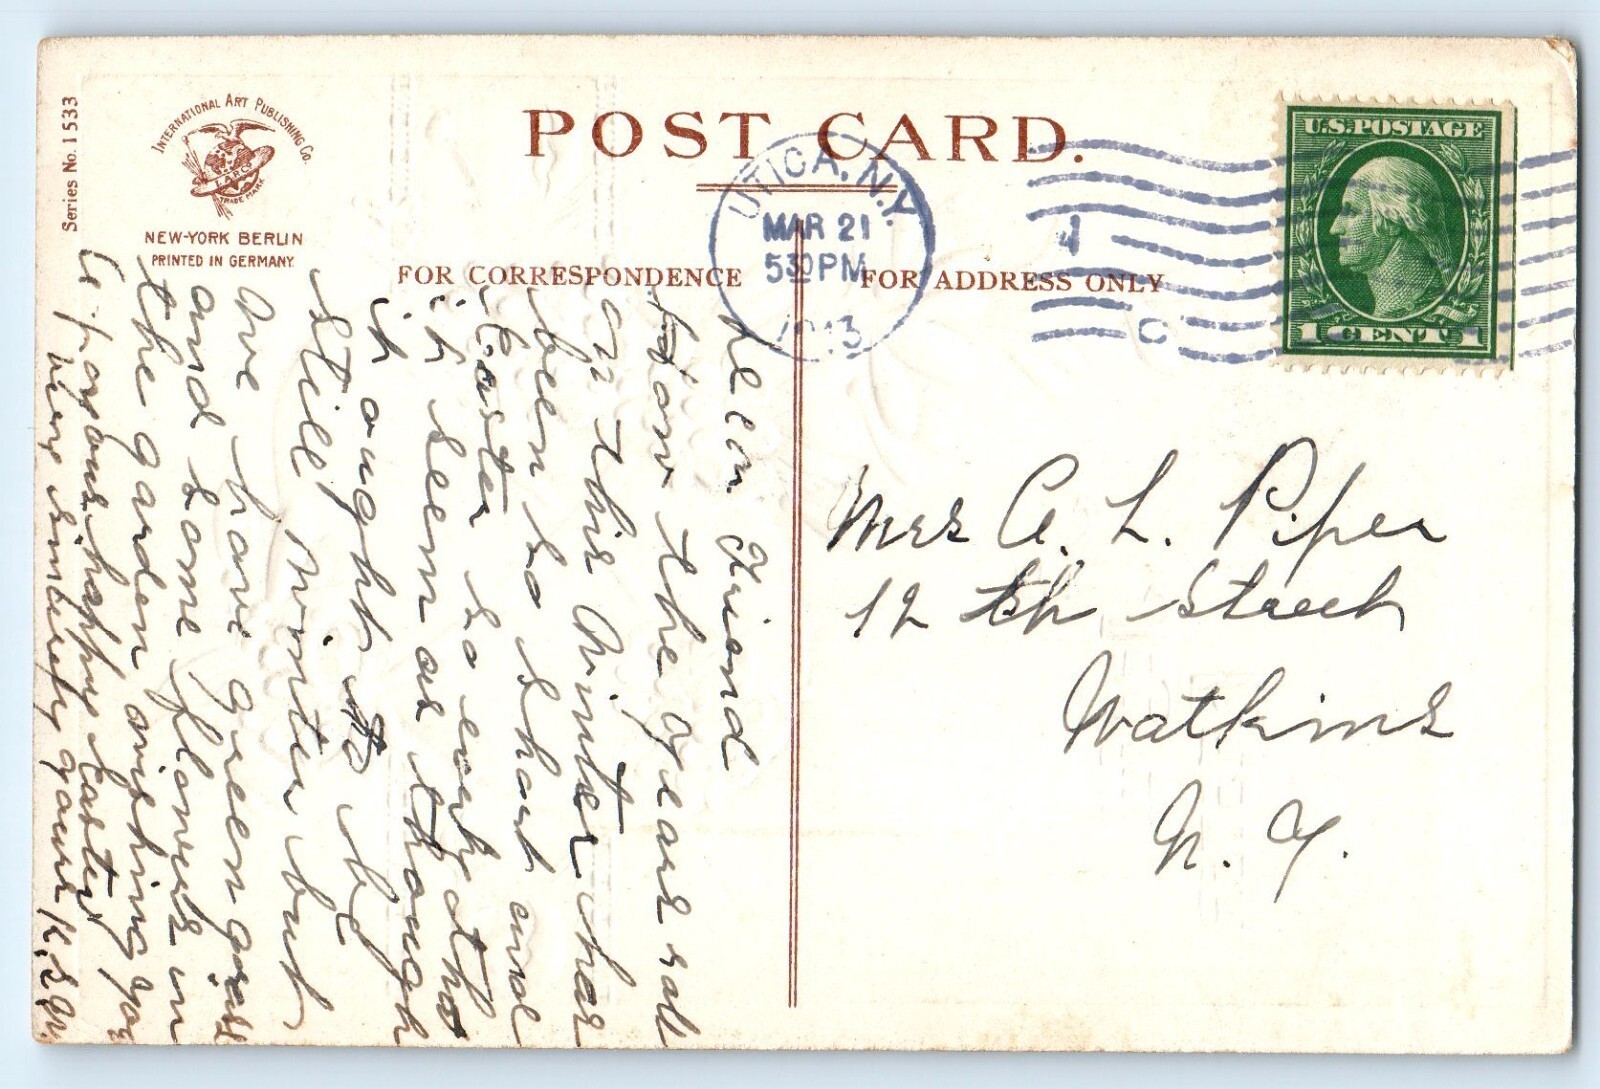 Series No. 1533
INTERNATIONAL ART PUBLISHING Co.
I.A.P.C.
TRADE MARK
NEW-YORK BERLIN
PRINTED IN GERMANY
POST CARD.
FOR CORRESPONDENCE
FOR ADDRESS ONLY
UTICA, N.Y.
MAR 21
530 PM
1913
U.S. POSTAGE
1 CENT 1
Dear Friend
how the years roll
on this Winter has
been so short and
Easter so early that
it seem as though
it ought to be
still Winter but
we have green grass
and some flowers in
the garden wishing you
a joyous happy Easter
very sincerely yours K.
Mrs A. L. Piper
12 th Street
Watkins
N. Y.